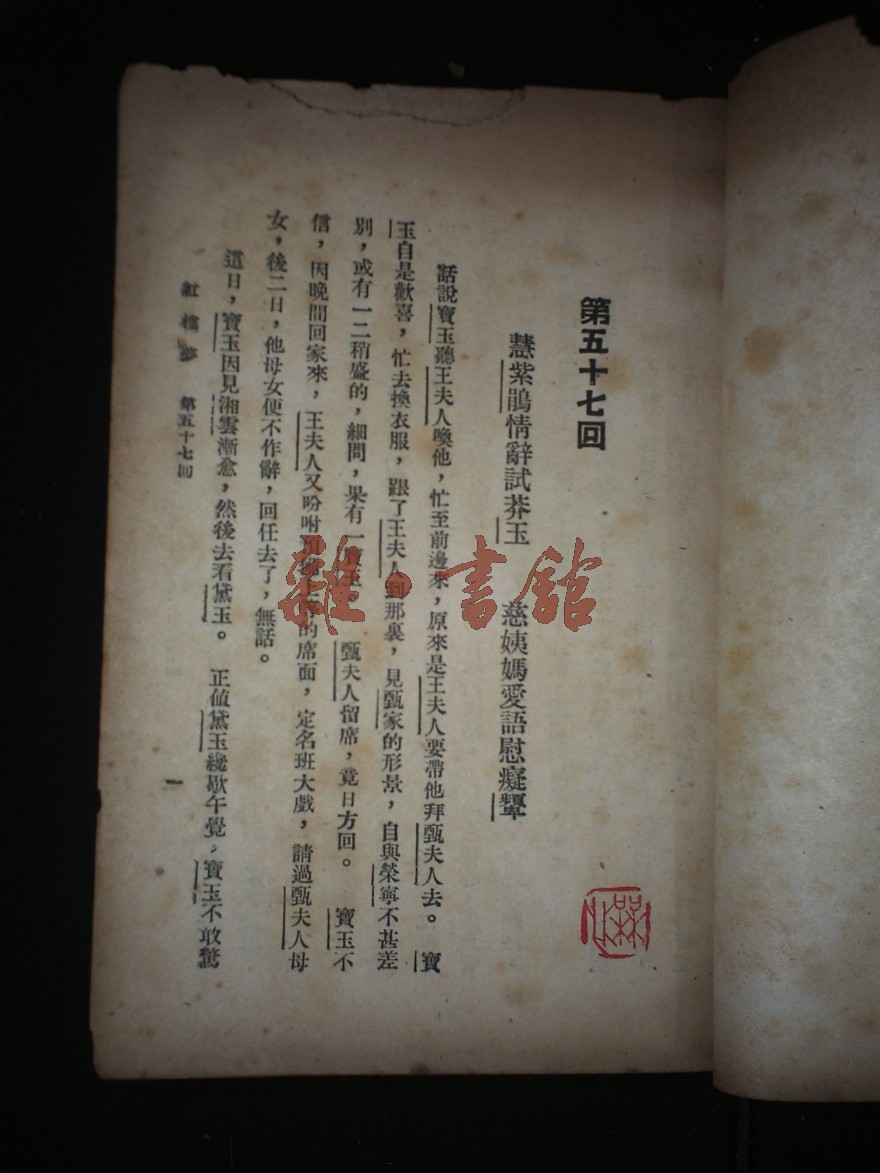 第五十七回
慧紫鵑情辭試莽玉　慈姨媽愛語慰癡顰
話說寶玉聽王夫人喚他，忙至前邊來，原來是王夫人要帶他拜甄夫人去。寶
玉自是歡喜，忙去換衣服，跟了王夫人到那裏，見甄家的形景，自與榮寧不甚差
別，或有一二稍盛的，細問，果有一寶玉。甄夫人留席，竟日方回。寶玉不
信，因晚間回家來，王夫人又吩咐預備上等的席面，定名班大戲，請過甄夫人母
女，後二日，他母女便不作辭，回任去了，無話。
這日，寶玉因見湘雲漸愈，然後去看黛玉。正值黛玉纔歇午覺，寶玉不敢驚
紅樓夢　第五十七回　一
雜·書館